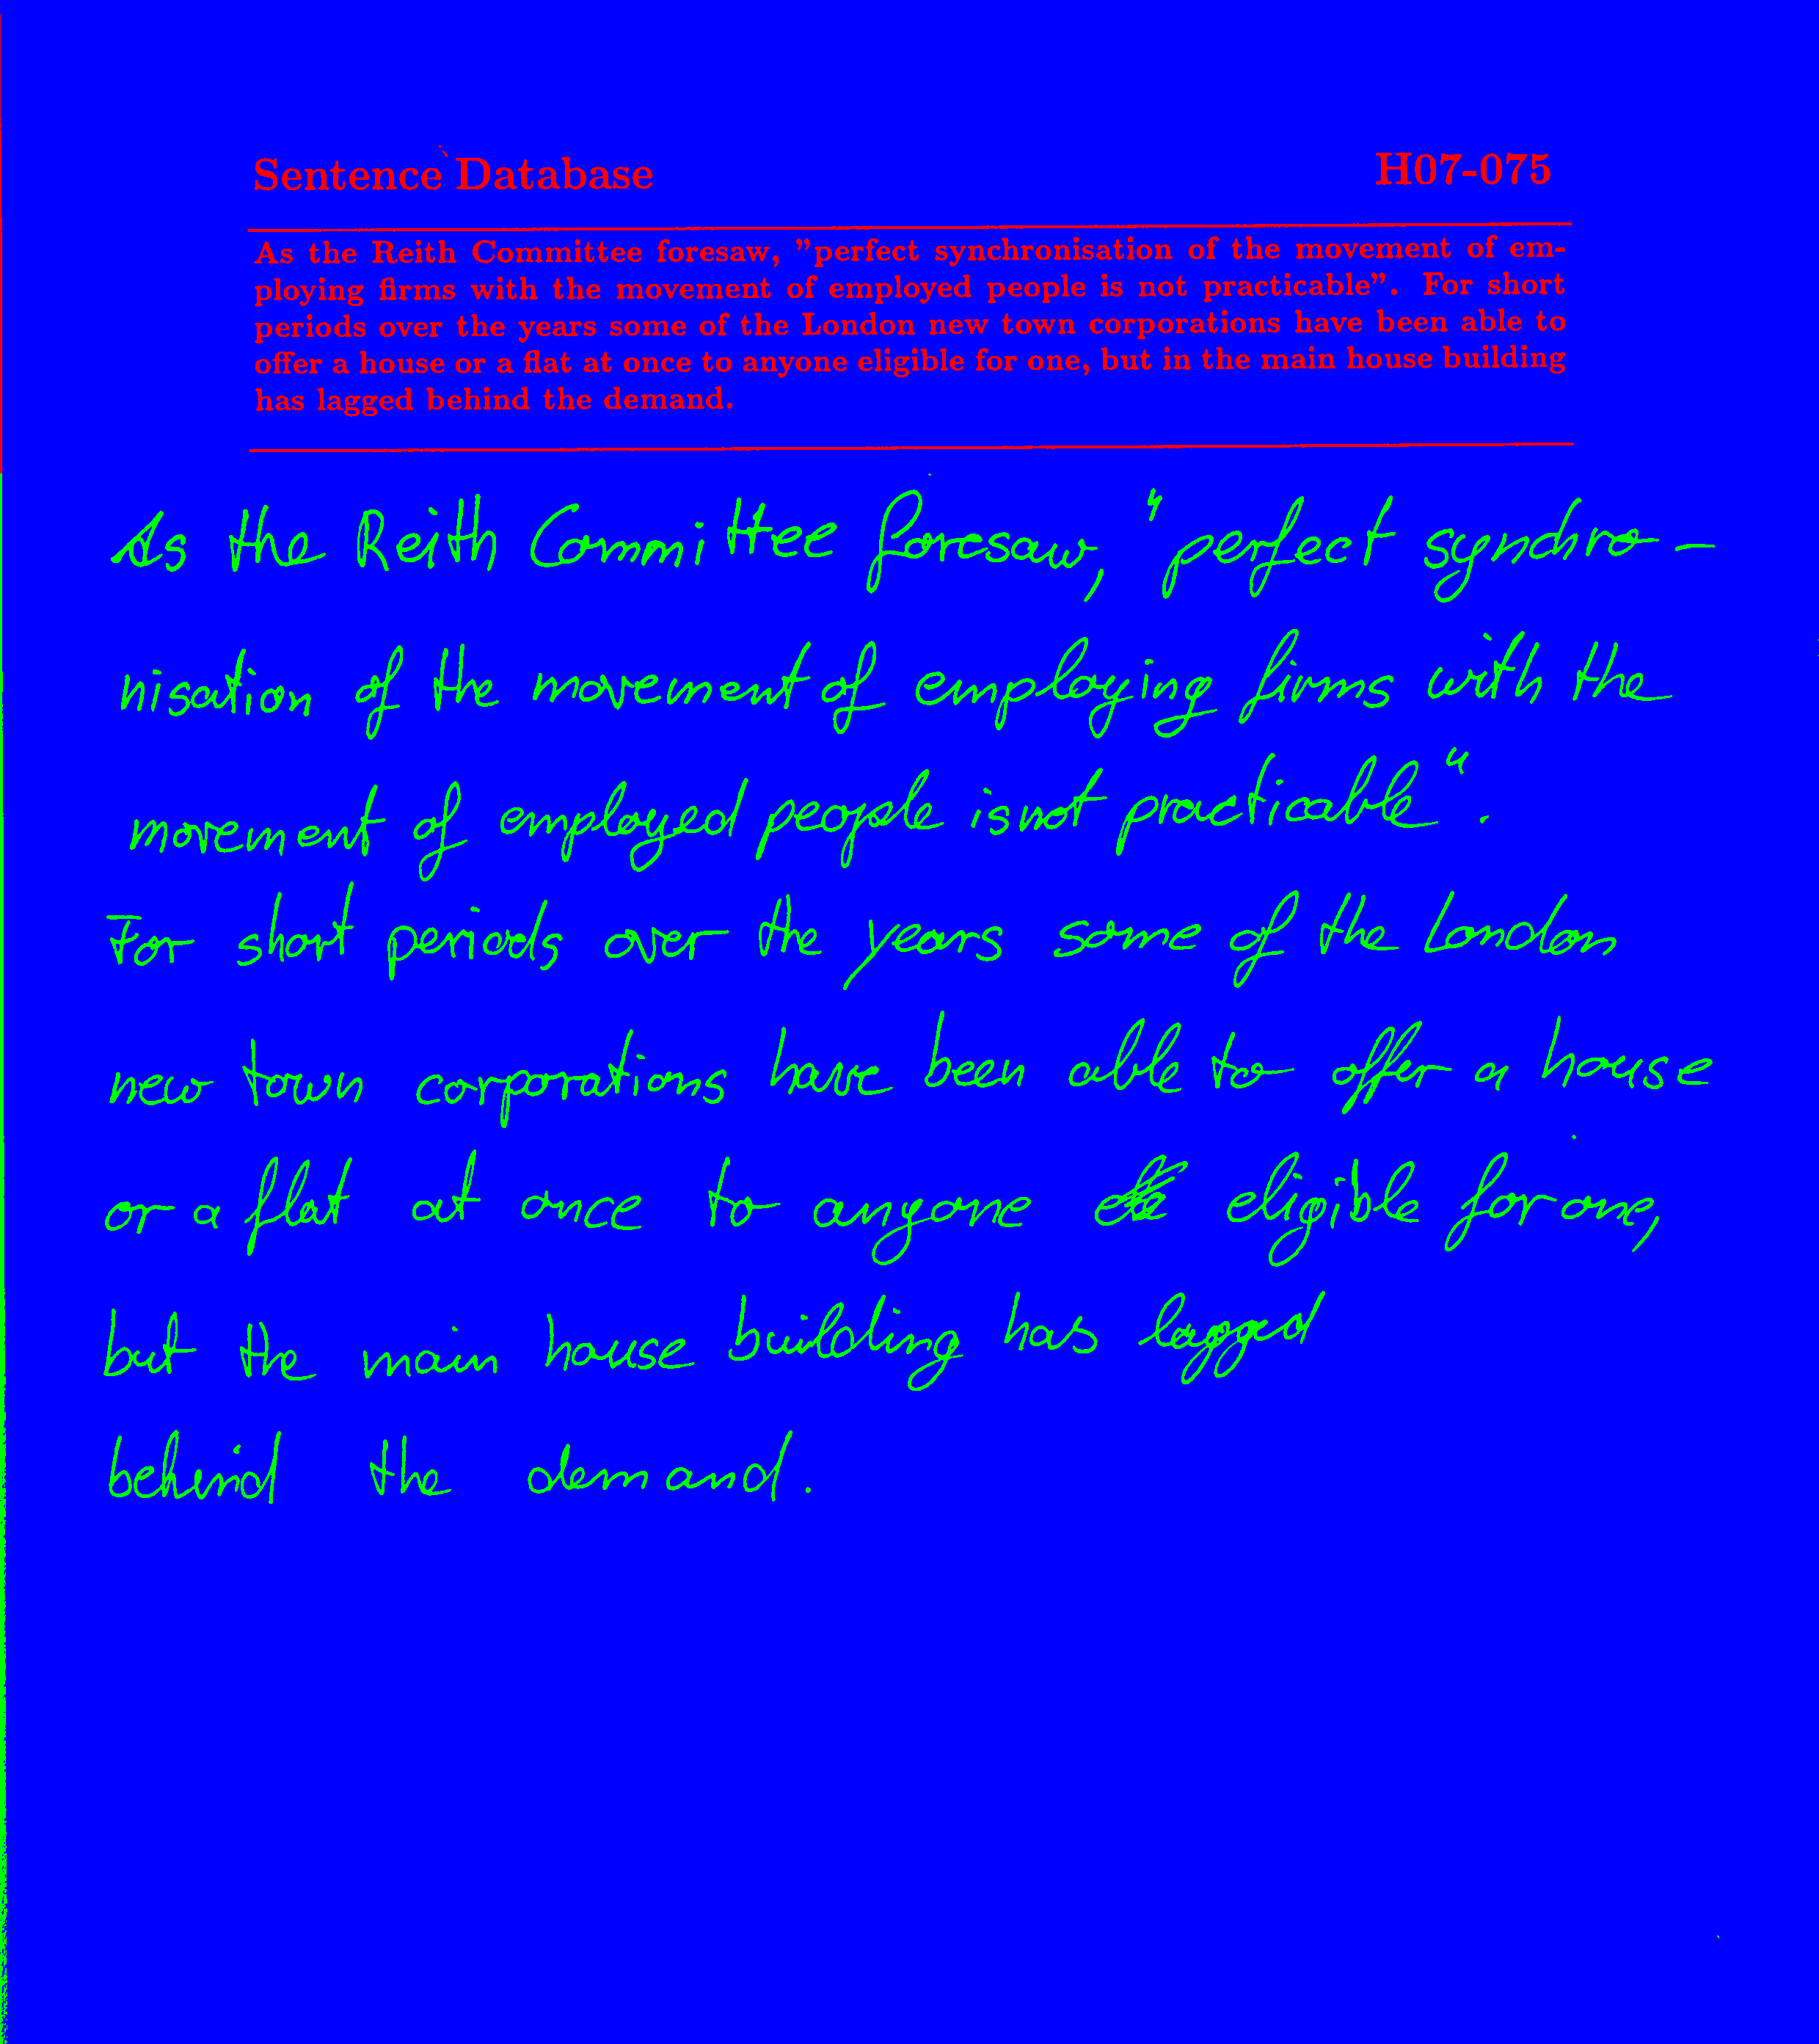 Sentence Database H07-075
As the Reith Committee foresaw, "perfect synchronisation of the movement of em-
ploying firms with the movement of employed people is not practicable". For short
periods over the years some of the London new town corporations have been able to
offer a house or a flat at once to anyone eligible for one, but in the main house building
has lagged behind the demand.
As the Reith Committee foresaw, "perfect synchro-
nisation of the movement of employing firms with the
movement of employed people is not practicable".
For short periods over the years some of the London
new town corporations have been able to offer a house
or a flat at once to anyone eligible for one,
but the main house building has lagged
behind the demand.